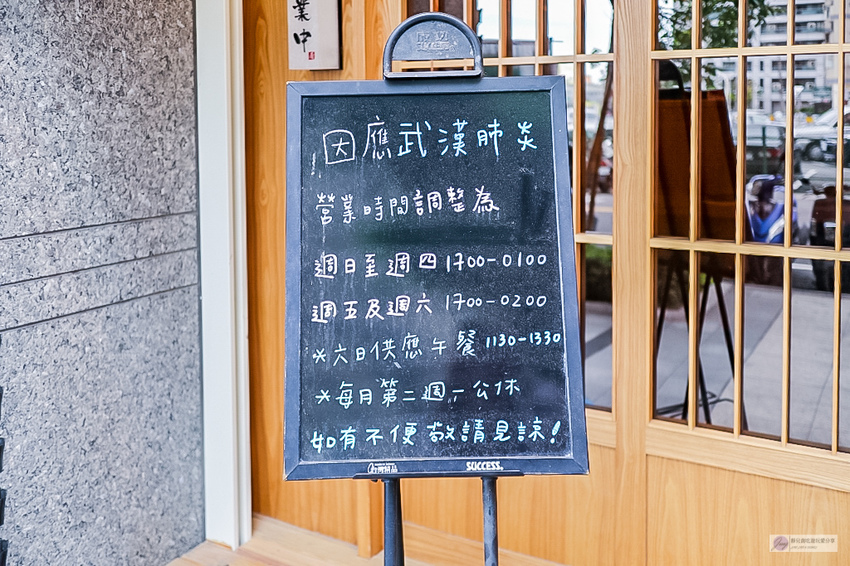 業中
SUCCESS
因應武漢肺炎
營業時間調整為
週日至週四 1700-0100
週五及週六 1700-0200
*六日供應午餐 1130-1330
*每月第二週一公休
如有不便敬請見諒!
SUCCESS®